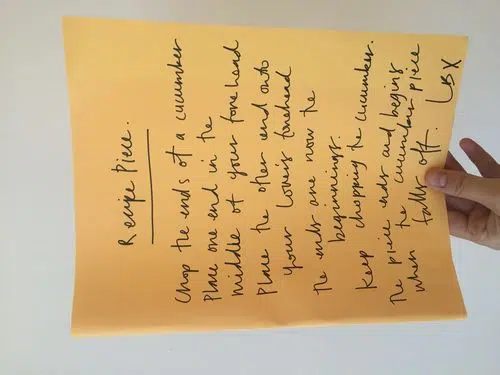 Recipe Piece.
Chop the ends of a cucumber
Place one end in the
middle of your forehead
Place the other end onto
your lovers forehead
The ends are now the
beginnings.
Keep chopping the cucumber.
The piece ends and begins
when the cucumber piece
falls off.
LBX